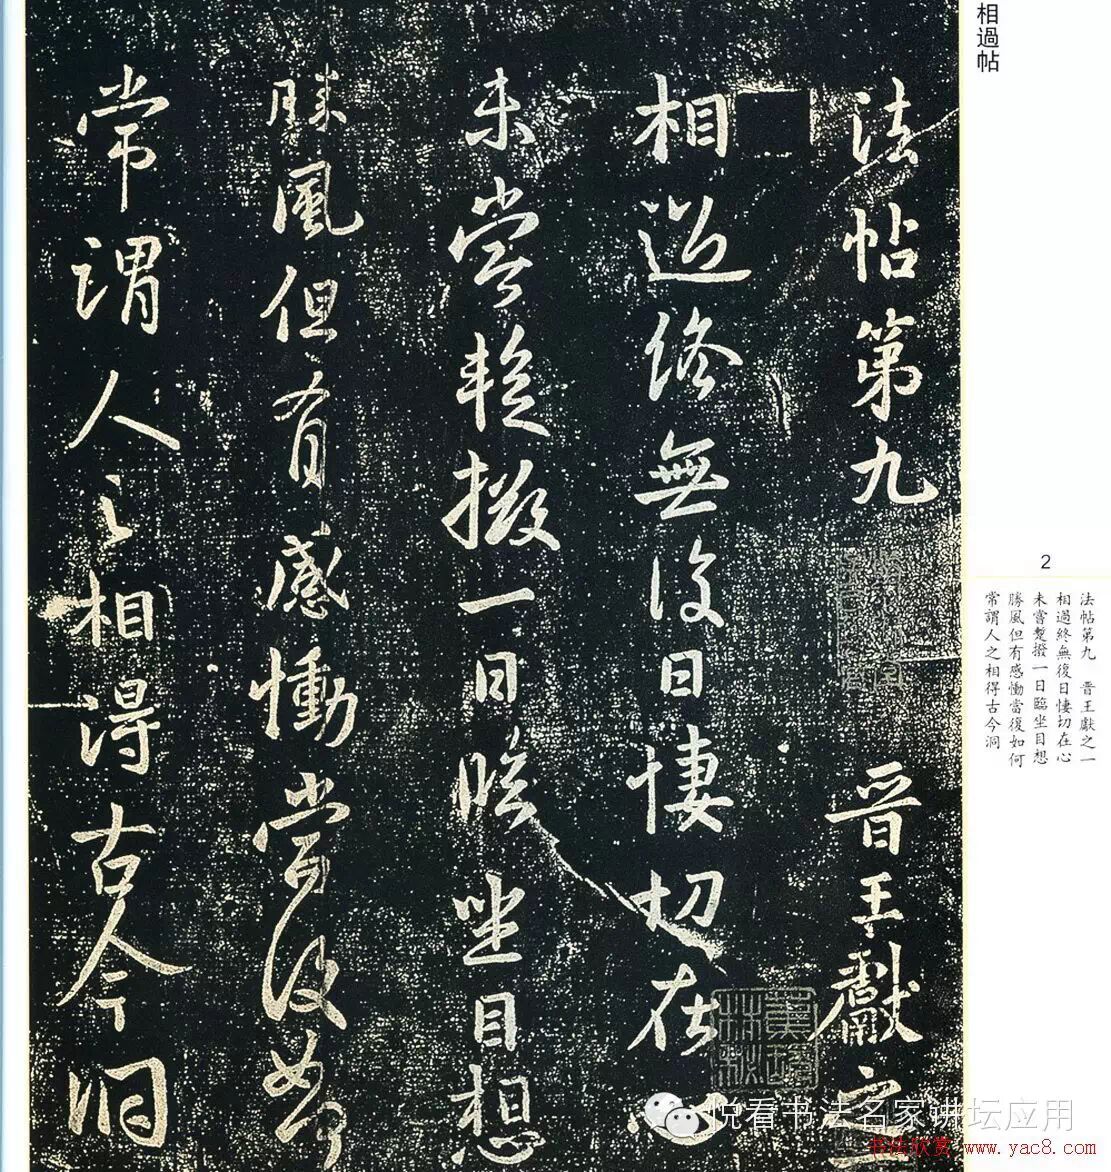 相過帖
法帖第九 晋王獻之一
相過終無復日悽切在心
未嘗蹔撥一日臨坐目想
勝風但有感慟當復如何
常謂人之相得古今洞
2
法帖第九 晋王獻之一
相過終無復日悽切在心
未嘗蹔撥一日臨坐目想
勝風但有感慟當復如何
常謂人之相得古今洞
悦看书法名家讲坛应用
书法欣赏 www.yac8.com